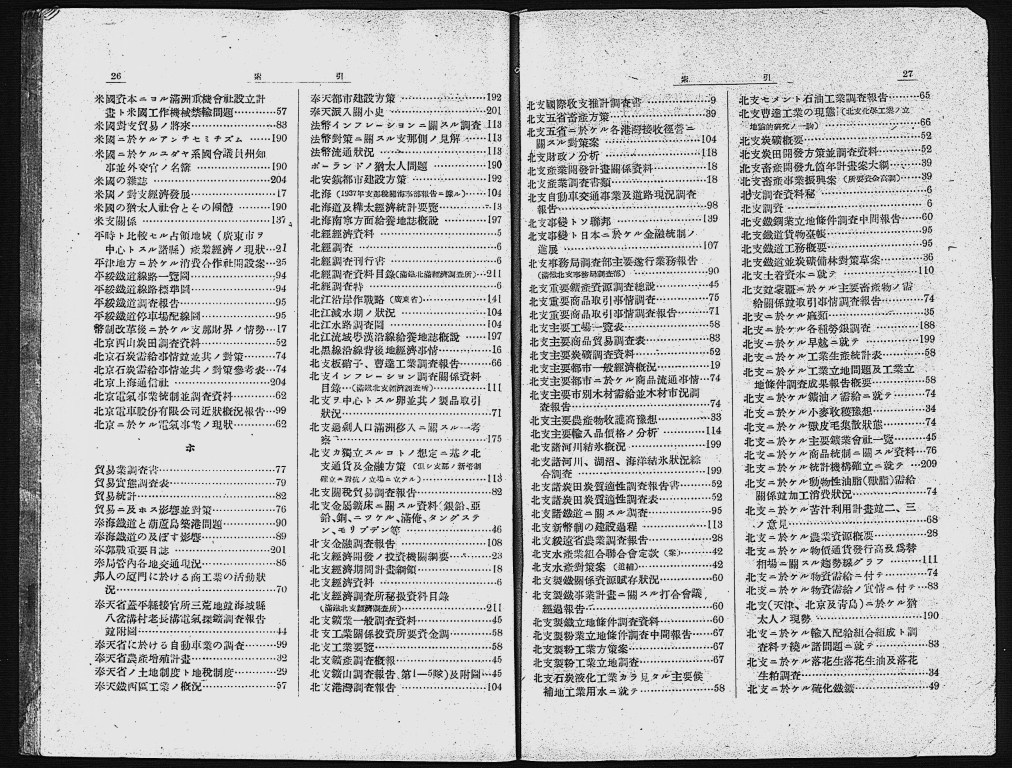 26
索引
米國資本ニヨル滿洲重機會社設立計
畫ト米國工作機械禁輸問題……57
米國對支貿易ノ將來……83
米國ニ於ケルアンチセミチズム……190
米國ニ於ケルユダヤ系國會議員州知
事並外交官ノ名簿……190
米國の雜誌……204
米國ノ對支經濟發展……17
米國の猶太人社會とその團體……190
米支關係……137
平時ト比較セル占領地域（廣東市ヲ
中心トスル諸縣）産業經濟ノ現狀…21
平津地方ニ於ケル消費合作社開設案…25
平綏鐵道線路一覽圖……94
平綏鐵道線路標準圖……94
平綏鐵道調査報告……95
平綏鐵道停車場配線圖……95
幣制改革後ニ於ケル支那財界ノ情勢…17
北京西山炭田調査資料……52
北京石炭需給事情竝其ノ對策……74
北京石炭需給事情竝其ノ對策參考表…74
北京上海通信社……204
北京電氣事業統制並調査資料……62
北京電車股份有限公司近狀概況報告…99
北京ニ於ケル電氣事業ノ現狀……62
ホ
貿易業調査書……77
貿易實態調査表……79
貿易統計……82
貿易ニ及ホス影響並對策……76
奉海鐵道と葫蘆島築港問題……90
奉海鐵道の及ぼす影響……89
奉郭戰重要日誌……201
奉局管內各地交通現況……85
邦人の厦門に於ける商工業の活動狀
況……70
奉天省蓋平縣接官所三荒地竝海城縣
八岔溝村老長溝電氣探鑛調査報告
竝附圖……44
奉天省に於ける自動車業の調査……99
奉天省農產增殖計畫……32
奉天省ノ土地制度ト地稅制度……29
奉天鐵西區工業ノ概況……57
奉天都市建設方策……192
奉天派入關小史……201
法幣インフレーションニ關スル調査…113
法幣對策ニ關スル支那側ノ見解……113
法幣流通狀況……113
ポーランドノ猶太人問題……190
北安鎭都市建設方策……192
北海（1937年支那稅關市況部報告ニ據ル）……104
北海道及樺太經濟統計要覽……13
北海南寧方面給養地誌概說……197
北經經濟資料……5
北經調査……6
北經調査刊行書……6
北經調査資料目錄（滿鐵北滿經濟調査所）…211
北經調査特……6
北江沿岸作戰略（廣東省）……141
北江減水期ノ狀況……104
北江水路調査圖……104
北江流域粤漢沿線給養地誌概說……197
北黑線沿線背後地經濟事情……16
北支板硝子、曹達工業調査報告……66
北支インフレーション調査關係資料
目錄…（滿鐵北支經濟調査所）……111
北支ヲ中心トスル卵並其ノ製品取引
狀況……71
北支過剩人口滿洲移入ニ關スル一考
察……175
北支カ獨立スルコトノ想定ニ基ク北
支通貨及金融方策（但シ支那ノ新幣制
確立ニ對抗ノ立場ニ立テル）……113
北支關稅貿易調査報告……82
北支金屬鑛床ニ關スル資料（銀鉛、亞
鉛、銅、ニッケル、滿俺、タングステ
ン、モリブデン等……46
北支金融調査報告……108
北支經濟開發ノ投資機關綱要……23
北支經濟期間計畫綱領……18
北支經濟資料……6
北支經濟調査所秘扱資料目錄
（滿鐵北支經濟調査所）……211
北支鑛業一般調査資料……45
北支工業關係投資所要資金調……58
北支工業要覽……58
北支鑛產調査概報……45
北支鑛山調査報告、第1—5隊）及附圖…45
北支港灣調査報告……104
27
索引
北支國際收支推計調査書……9
北支五省畜產方策……39
北支五省ニ於ケル各港灣接收經營ニ
關スル對策案……104
北支財政ノ分析……118
北支產業開發計畫關係資料……18
北支產業調査書類……18
北支自動車交通事業及道路現況調査
報告……98
北支事變トソ聯邦……139
北支事變ト日本ニ於ケル金融統制ノ
進展……107
北支事務局調査部主要遂行業務報告
（滿鐵北支事務局調査部）……90
北支重要鑛產資源調査總說……45
北支重要商品取引事情調査……75
北支重要商品取引事情調査報告……71
北支主要工場一覽表……58
北支主要商品貿易調査表……83
北支主要炭礦調査資料……52
北支主要都市一般經濟槪況……19
北支主要都市ニ於ケル商品流通事情…74
北支主要市別木材需給並木材市況調
査報告……74
北支主要農產物收護高豫想……33
北支主要輸入品價格ノ分析……114
北支諸河川結氷槪況……199
北支諸河川、湖沼、海洋結氷狀況綜
合調査……199
北支諸炭田炭質適性調査報告書……52
北支諸炭田炭質適性調査表……52
北支諸鐵道ニ關スル調査……95
北支新幣制の建設過程……113
北支綏遠省農業調査報告……28
北支水產業組合聯合會定款（案）……42
北支水產對策案（追補）……42
北支製鐵關係資源賦存狀況……60
北支製鐵事業計畫ニ關スル打合會議
經過報告……60
北支製鐵立地條件調査資料……60
北支製粉業立地條件調査中間報告……67
北支製粉工業方策案……67
北支製粉工業立地調査……67
北支石炭液化工業カラ見タル主要候
補地工業用水ニ就テ……58
北支セメント石油工業調査報告……65
北支曹達工業の現態（北支化學工業ノ立
地論的研究ノ一齣）……66
北支炭礦槪要……52
北支炭田開發方策並調査資料……52
北支畜產開發九箇年計畫案大綱……39
北支畜產事業振興案（所要資金高調）……39
北支調査資料秘……6
北支調資……6
北支鐵鋼業立地條件調査中間報告……60
北支鐵道貨物運賬……95
北支鐵道工務概要……95
北支鐵道並炭礦備林對策草案……36
北支土着資本ニ就テ……110
北支竝蒙疆ニ於ケル主要畜產物ノ需
給關係竝取引事情調査報告……74
北支ニ於ケル麻類……35
北支ニ於ケル各種勞銀調査……188
北支ニ於ケル旱魃ニ就テ……199
北支ニ於ケル工業生產統計表……58
北支ニ於ケル工業立地問題及工業立
地條件調査成果報告概要……58
北支ニ於ケル鑛油ノ需給ニ就テ……74
北支ニ於ケル小麥收穫豫想……34
北支ニ於ケル獸皮毛集散狀態……74
北支ニ於ケル主要礦業會社一覽……45
北支ニ於ケル商品統制ニ關スル資料…76
北支ニ於ケル統計機構確立ニ就テ…209
北支ニ於ケル動物性油脂（獸脂）需給
關係竝加工消費狀況……74
北支ニ於ケル苦汁利用計畫竝二、三
ノ意見……68
北支ニ於ケル農業資源概要……28
北支ニ於ケル物價通貨發行高及爲替
相場ニ關スル趨勢線グラフ……111
北支ニ於ケル物資需給ニ付テ……74
北支ニ於ケル物資需給ノ實情ニ付テ…83
北支（天津、北京及青島）ニ於ケル猶
太人ノ現勢……190
北支ニ於ケル輸入配給組合組成ト調
査料ヲ繞ル諸問題ニ就テ……83
北支ニ於ケル落花生落花生油及落花
生粕調査……34
北支ニ於ケル硫化鐵鑛……49